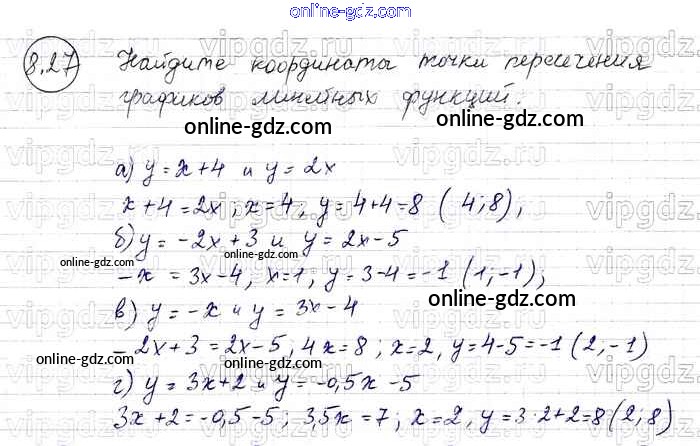 online-gdz.com
8.27 Найдите координаты точки пересечения
графиков линейных функций.
online-gdz.com
а) y = x+4 и y = 2x
x+4=2x; x=4; y=4+4=8 (4;8);
б) y = -2x+3 и y = 2x-5
online-gdz.com
-x = 3x-4, x=1, y=3-4=-1 (1,-1);
в) y = -x и y = 3x-4
online-gdz.com
-2x+3 = 2x-5; 4x=8; x=2, y=4-5=-1 (2,-1)
online-gdz.com
г) y = 3x+2 и y = -0,5x-5
online-gdz.com
3x+2=-0,5-5; 3,5x=7; x=2, y=3·2+2=8 (2;8)
online-gdz.com